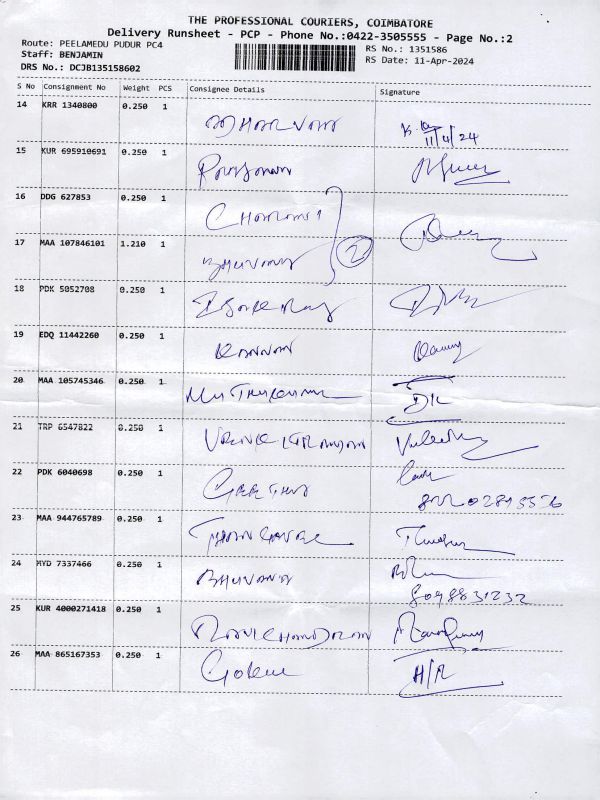 THE PROFESSIONAL COURIERS, COIMBATORE
Delivery Runsheet - PCP - Phone No.:0422-3505555 - Page No.:2
Route: PEELAMEDU PUDUR PC4
Staff: BENJAMIN
DRS No.: DCJB135158602
RS No.: 1351586
RS Date: 11-Apr-2024
S No Consignment No Weight PCS Consignee Details Signature
14 KRR 1340800 0.250 1
11/4/24
15 KUR 695910691 0.250 1
16 DDG 627853 0.250 1
17 MAA 107846101 1.210 1 BHUVANA 2
18 PDK 5052708 0.250 1
19 EDQ 11442260 0.250 1 KANNAN
20 MAA 105745346 0.250 1 MUTHUKUMAR
21 TRP 6547822 0.250 1
22 PDK 6040698 0.250 1 GEETHA
23 MAA 944765789 0.250 1
24 MYD 7337466 0.250 1 BHUVANA
8098831232
25 KUR 4000271418 0.250 1 RAVICHANDRAN
26 MAA 865167353 0.250 1 GOKUL H/R